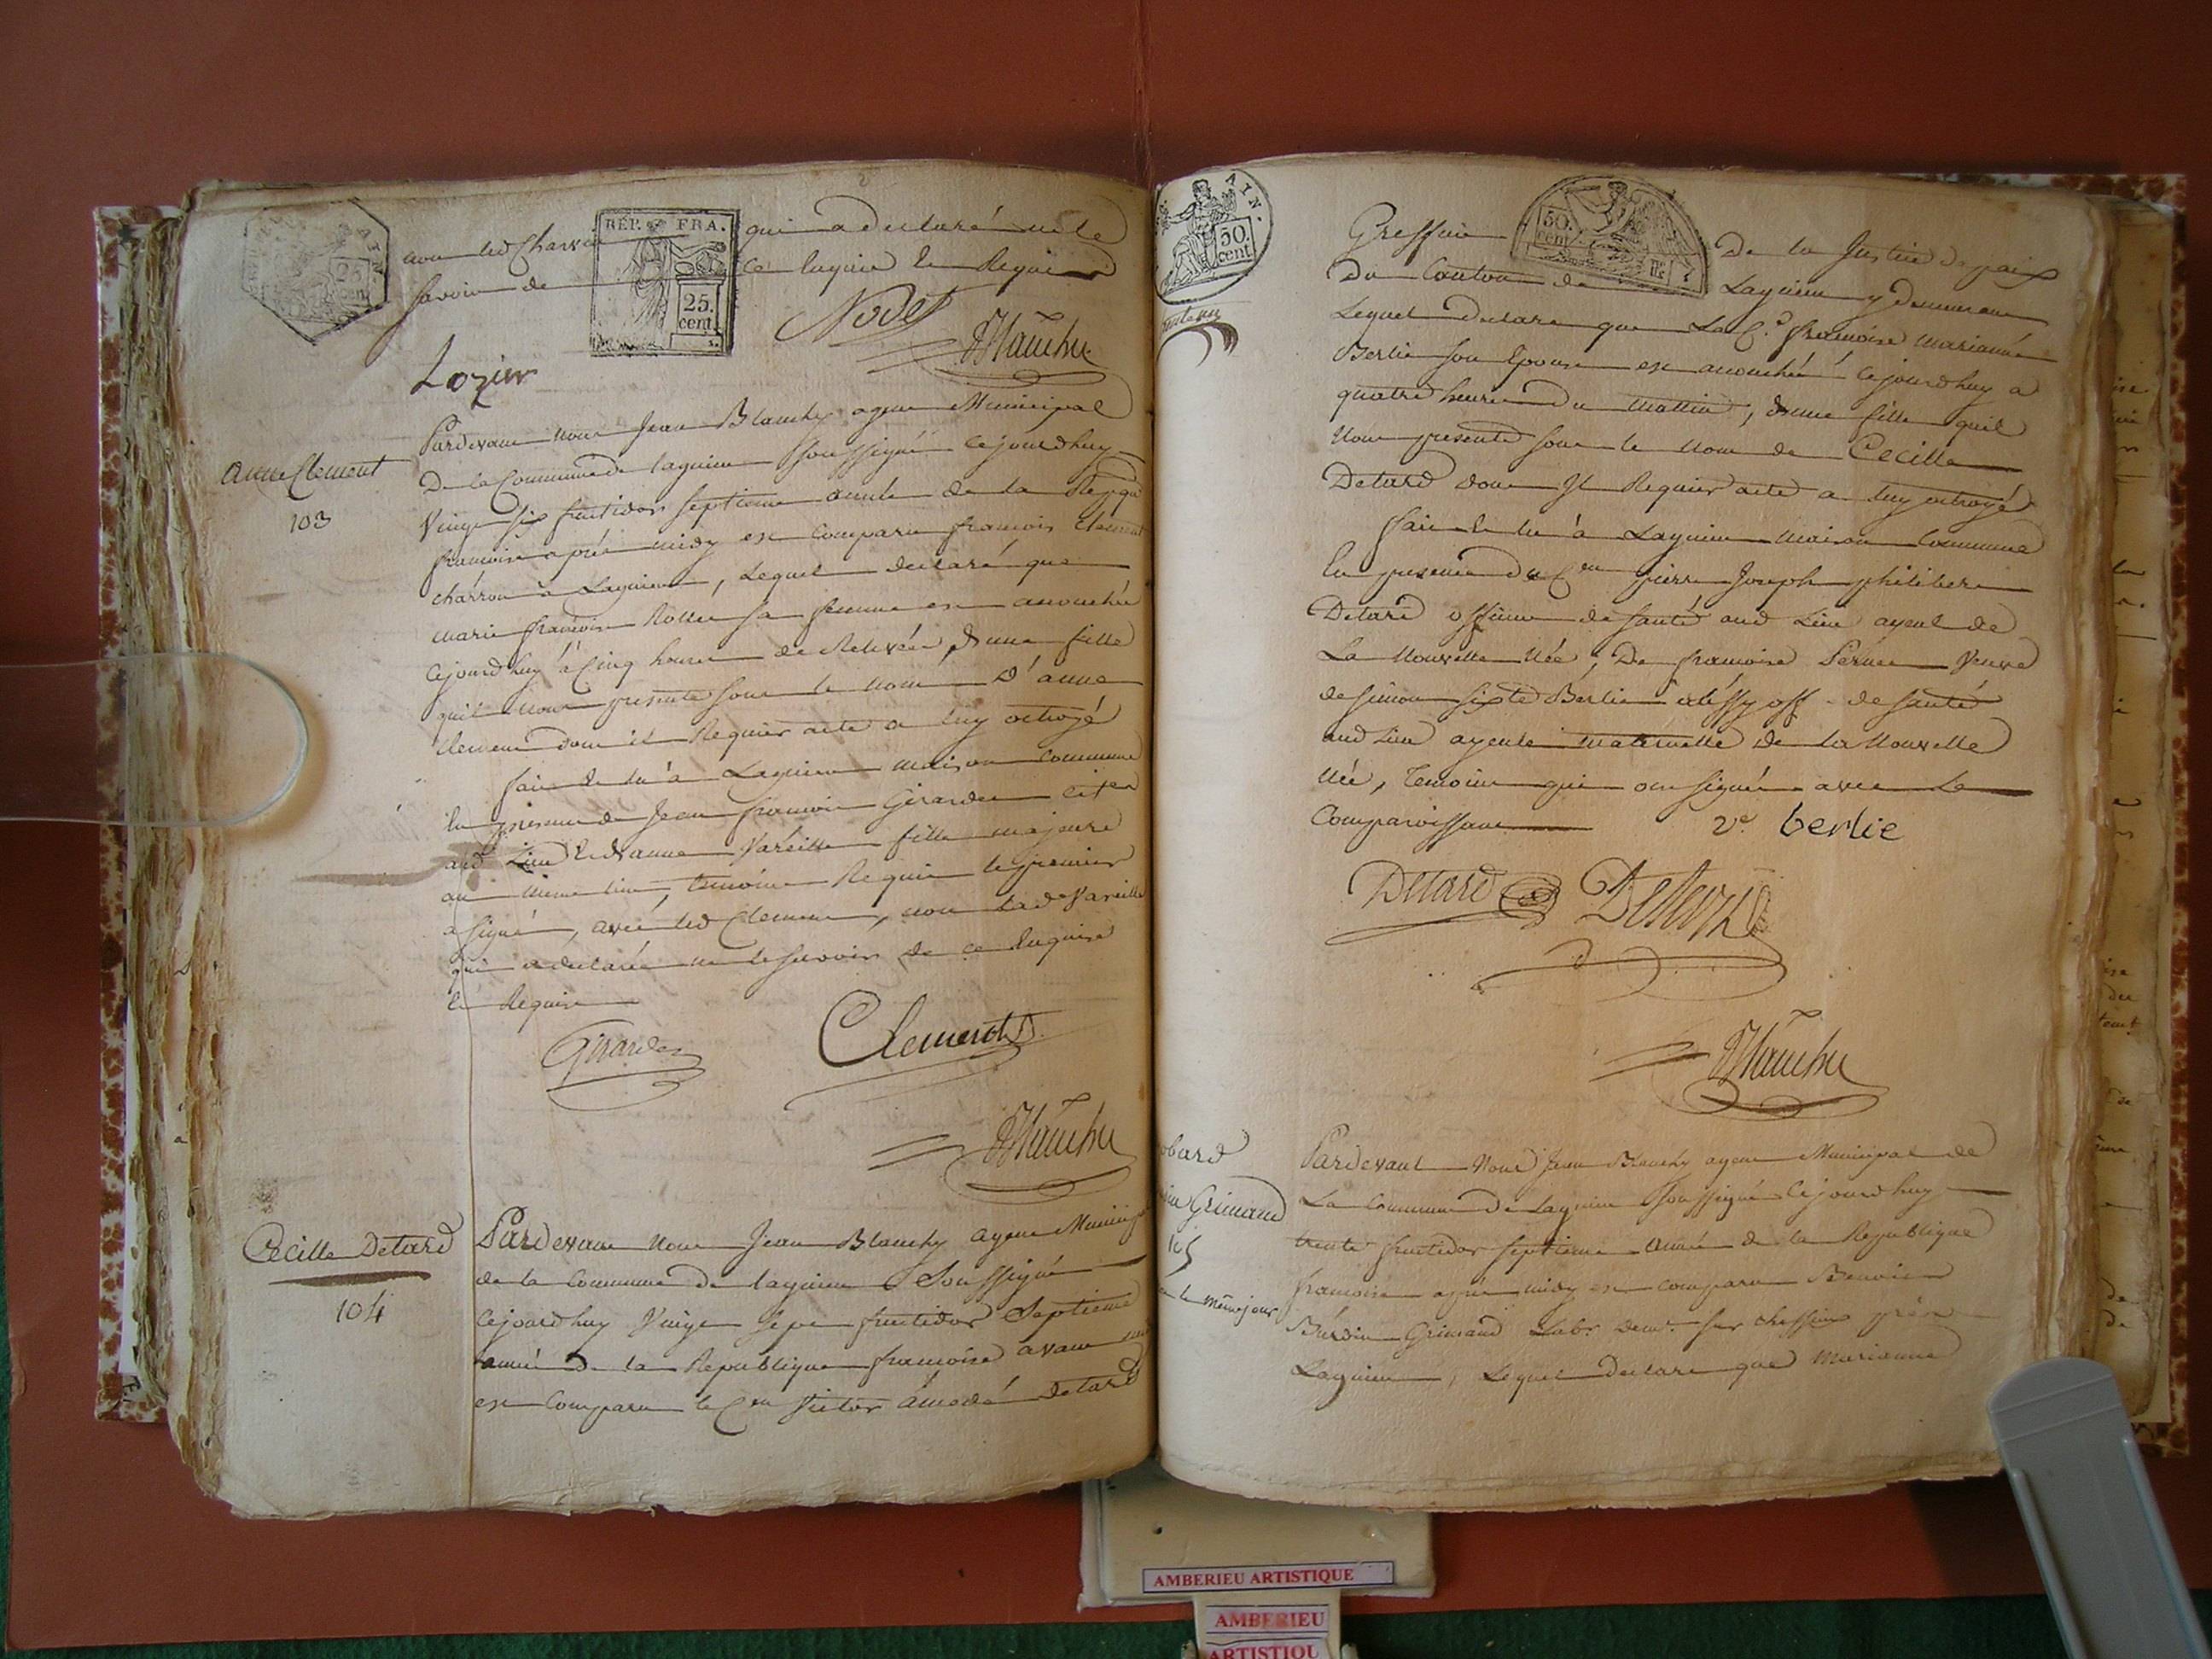 AIN.
25
cent
REP. FRA.
25.
cent.
qui a declaré ne le
savoir de ce enquis et Requis
Nodet
Blanchy
Lozier
Anne Clement
103
Pardevant nous Jean Blanchy agent Municipal
De la Commune de lagnieu soussigné cejourdhuy
Vingt six fructidor septieme année de la Repque
francoise après midy est comparu francois Clement
charron a Lagnieu, Lequel declaré que
marie francoise Rollet sa femme est accouchée
cejourdhuy à Cinq heures de Relevée, d'une fille
quil nous presente sous le nom d'anne
Clement dont il Requier acte a luy octroyé
fait et lu à Lagnieu maison commune
En presence de Jean francois Girardet cit.en
aud. Lieu et d'anne Vareille fille majeure
au même lieu, temoins Requis le premier
a signé, avec led Clement, non lad. Vareille
qui a declarée ne le savoir de ce Enquise
et Requise
Girardet
Clement
Blanchy
Cecille Detard
104
Pardevant nous Jean Blanchy agent Municipal
de la Commune de lagnieu Soussigné
Cejourdhuy Vingt sept fructidor Septieme
année de la Republique francoise avant midy
est comparu le Cen Victor Amedé Detard
AIN.
50.
cent
50.
cent.
Greffier De la Justice de paix
du Canton de Lagnieu y demeurant
Lequel declare que La C.e francoise marianne
Berlie son Epouse est accouchée cejourdhuy a
quatre heures du mattin, d'une fille quil
nous presente sous le nom de Cecille
Detard dont Il Requier acte a luy octroyé
fait et lu à Lagnieu maison Commune
En presence du Cen pierre Joseph philibert
Detard officier de santé aud Lieu ayeul de
La Nouvelle Née, De francoise Pernet Veuve
de simon sixte Berlie off. de santé
aud Lieu ayeule maternelle de la Nouvelle
née, Temoins qui ont signé avec le
Comparoissant
Ve. berlie
Detard
Detard
Blanchy
obard
Grimand
105
le mêmejour
Pardevant Nous Jean Blanchy agent Municipal de
La Commune de Lagnieu soussigné Cejourdhuy
trente fructidor septieme année de la Republique
francoise après midy est comparu Benoit
Burdin Grimand Labr. demt. sur chessieu près
Lagnieu, Lequel declare que Marianne
AMBERIEU ARTISTIQUE
AMBERIEU
ARTISTIQU